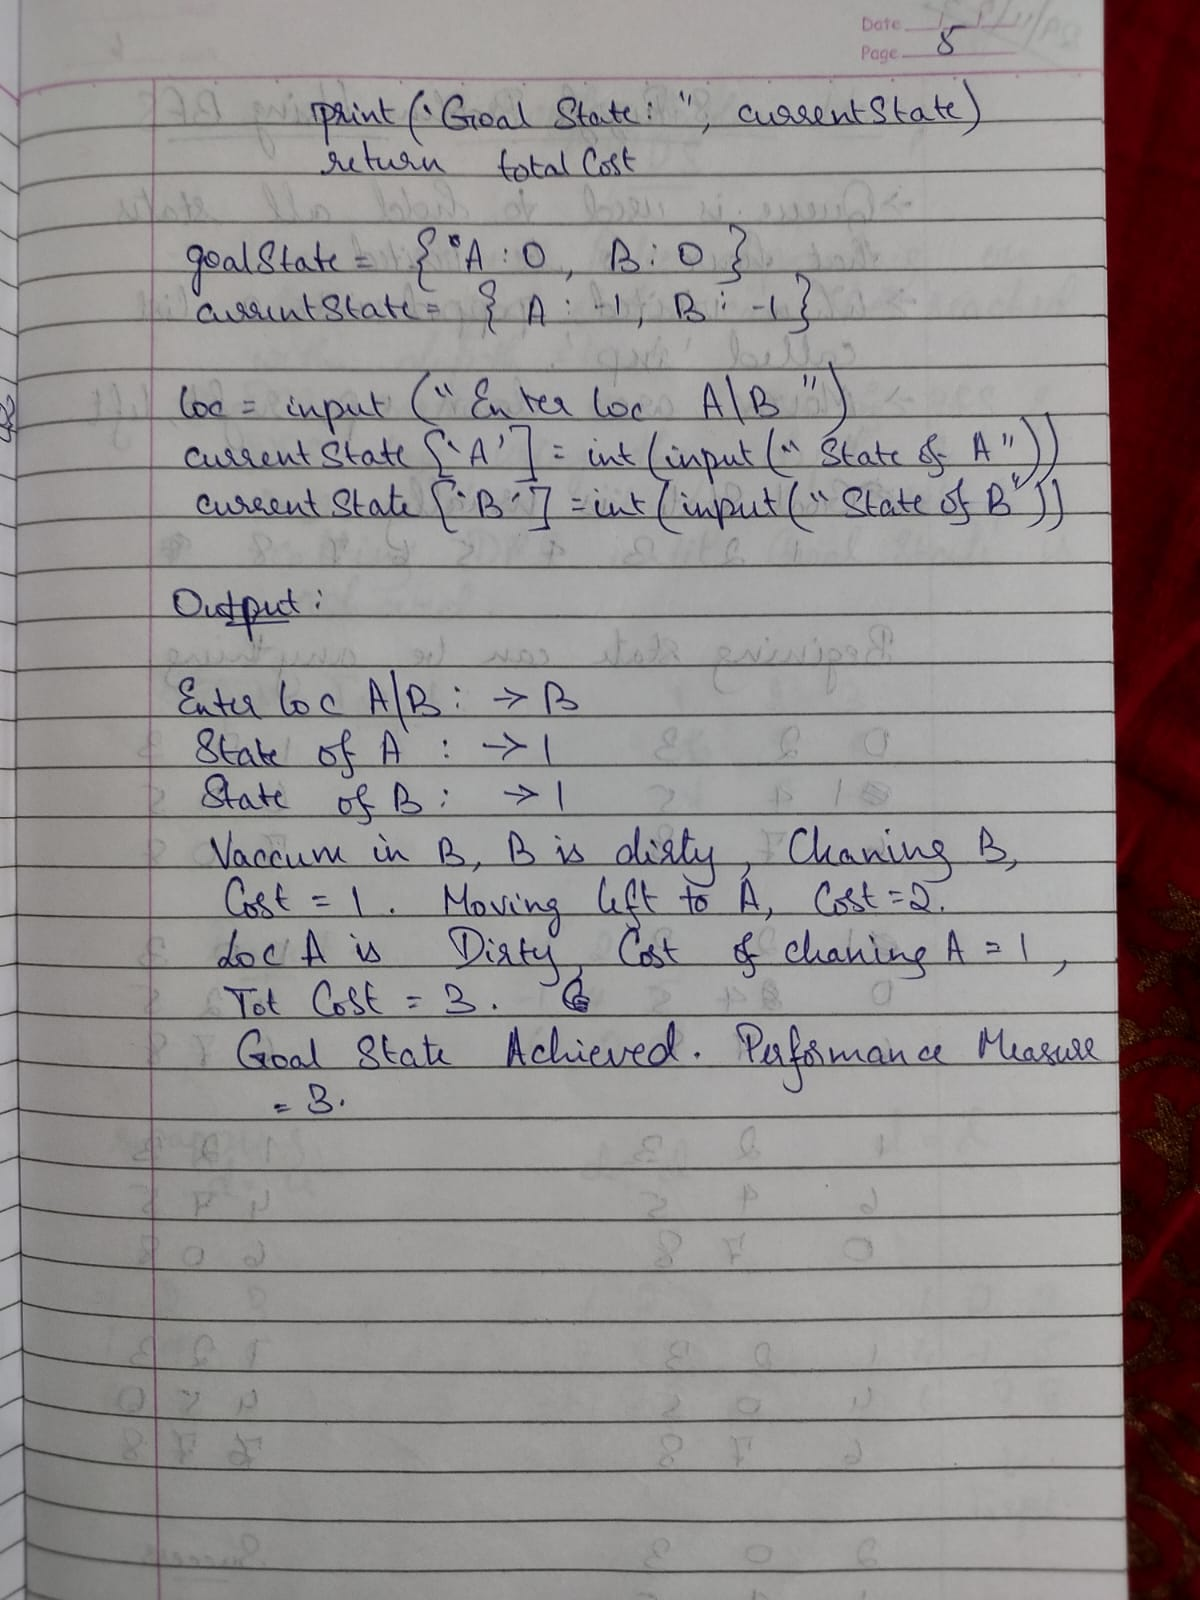 Date
Page 5
print ("Goal State: ", currentState)
return total Cost
goalState = { 'A : 0 , B : 0 }
currentState = { A : -1, B : -1 }
loc = input (" Enter loc A|B ")
current State ['A'] = int (input (" State of A"))
current State ['B'] = int (input (" State of B"))
Output :
Enter loc A|B : → B
State of A : → 1
State of B : → 1
Vaccum in B, B is dirty, Cleaning B,
Cost = 1. Moving left to A, Cost = 2.
Loc A is Dirty, Cost of cleaning A = 1,
Tot Cost = 3.
Goal State Achieved. Performance Measure
= 3.